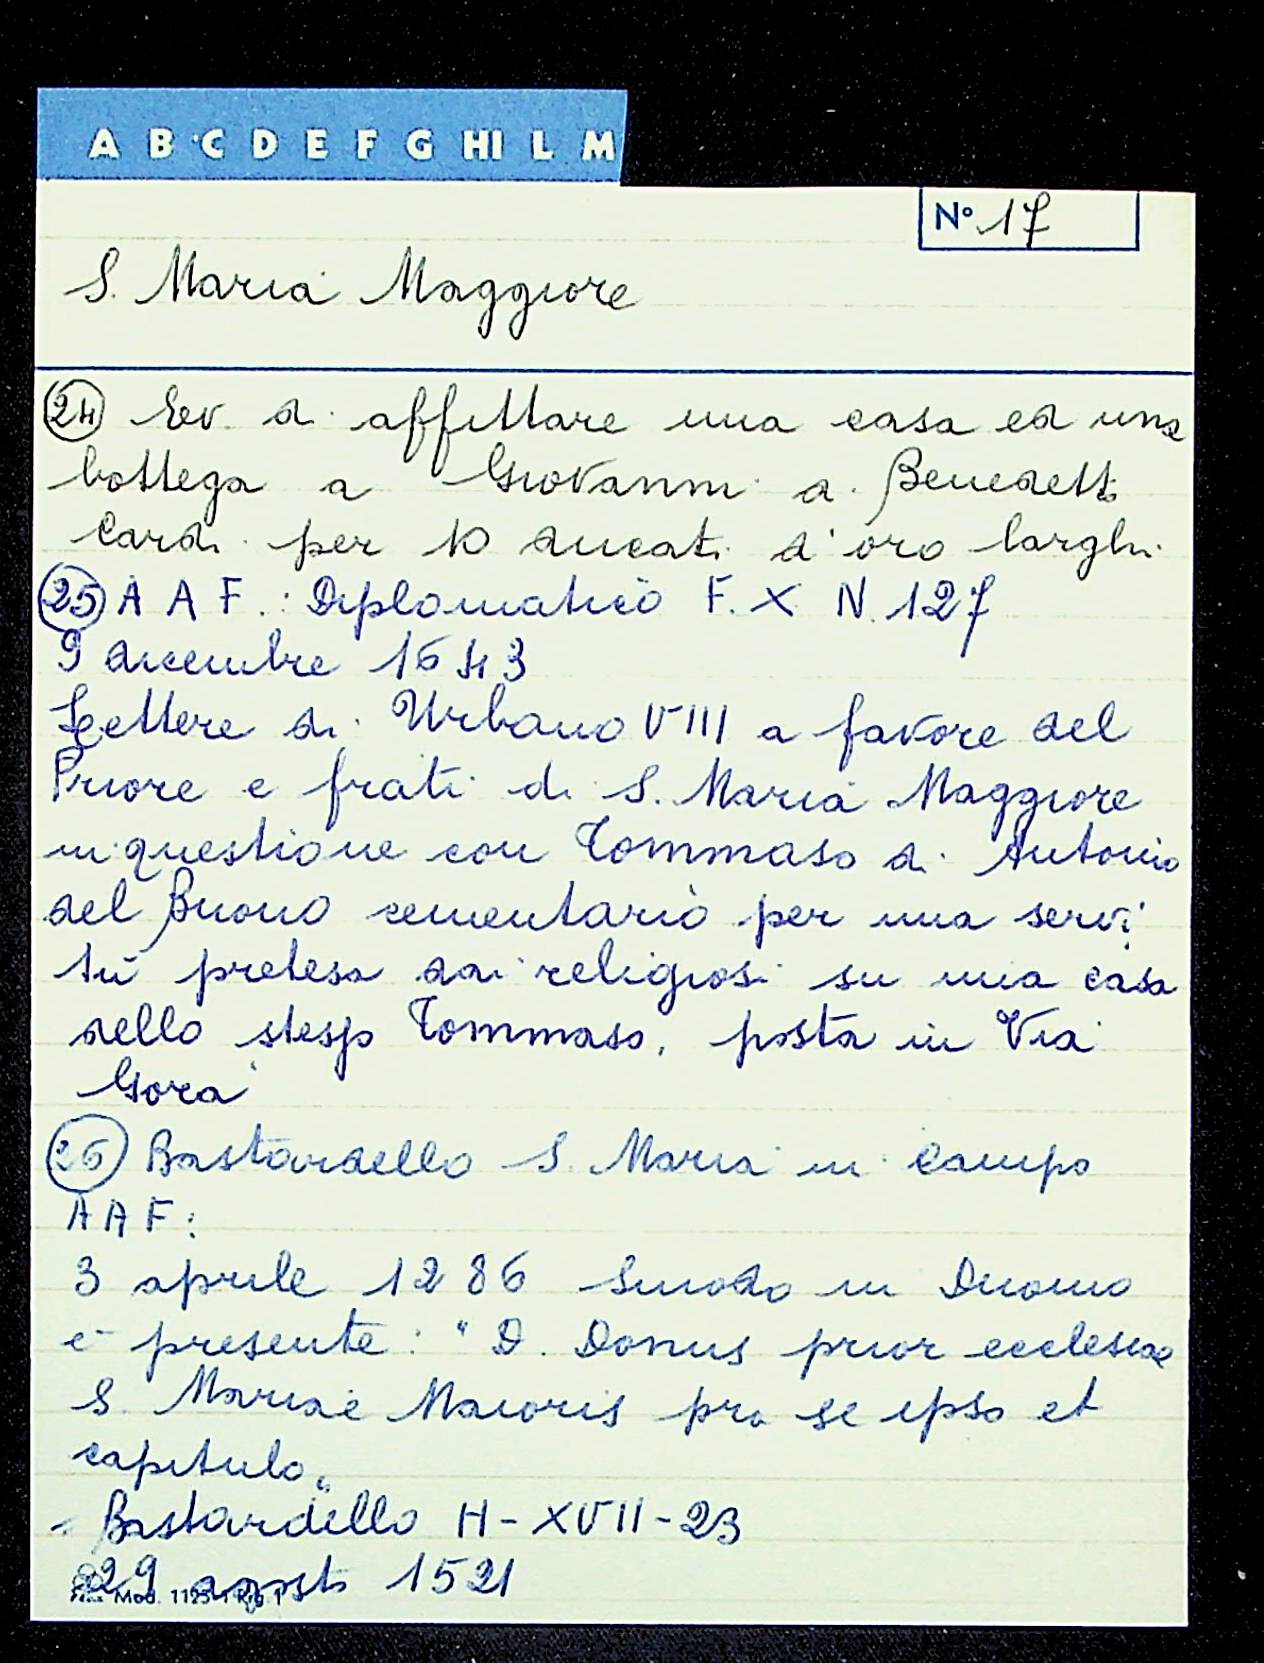 A B C D E F G HI L M
N° 17
S. Maria Maggiore
24 di affittare una casa ed una
bottega a Giovanni di Benedetto
Cardi per 10 ducati d'oro larghi
25 A A F.: Diplomatico F. X N. 127
9 dicembre 1643
Lettere di Urbano VIII a favore del
Priore e frati di S. Maria Maggiore
in questione con Tommaso di Antonio
del Buono cementario per una servi
tù pretesa dai religiosi su una casa
dello stesso Tommaso, posta in Via
Gora
26 Bastardello S. Maria in Campo
A A F:
3 aprile 1286 Sinodo in Duomo
è presente: "D. Donus prior ecclesiae
S. Mariae Maioris pro se ipso et
capitulo"
- Bastardello H - XVII - 23
29 agosto 1521
Mod. 1125